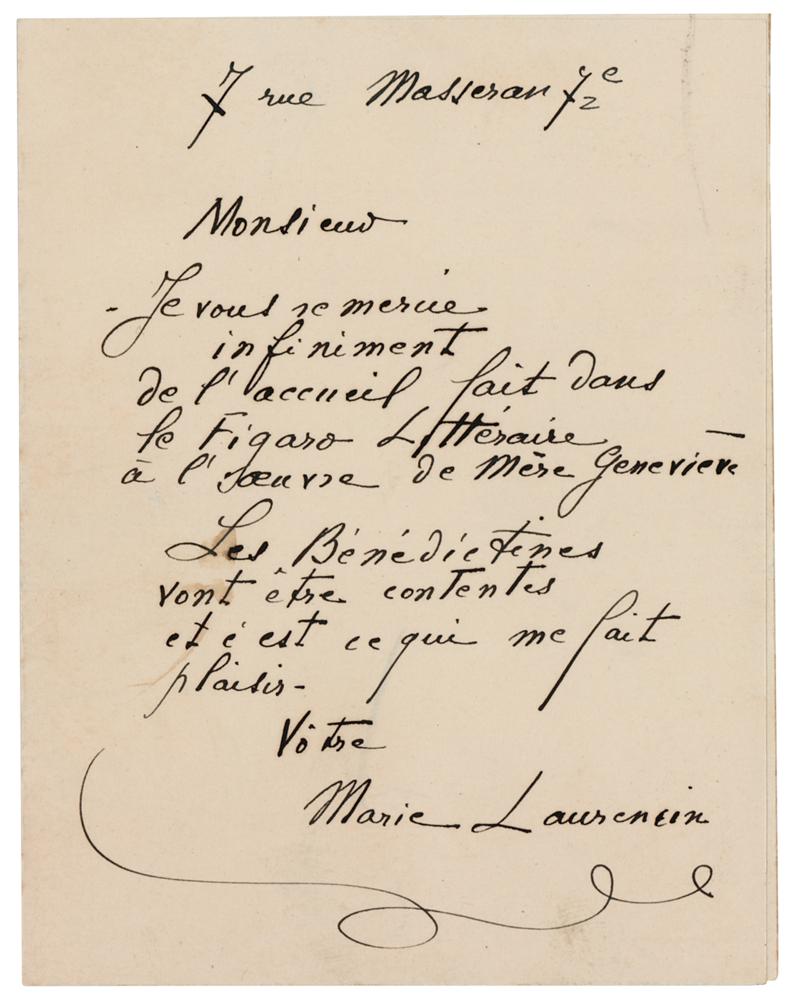 7 rue Masseran 7e
Monsieur
- Je vous remercie
infiniment
de l'accueil fait dans
le Figaro Littéraire –
à l'œuvre de Mère Geneviève
Les Bénédictines
vont être contentes
et c'est ce qui me fait
plaisir -
Vôtre
Marie Laurencin